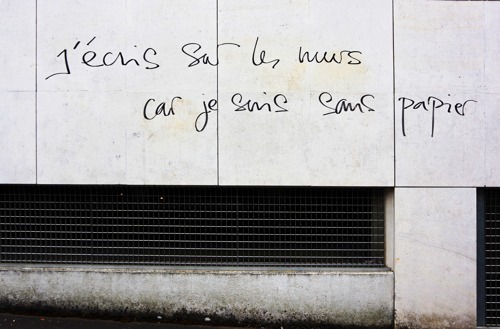 j'écris sur les murs
car je suis sans papier